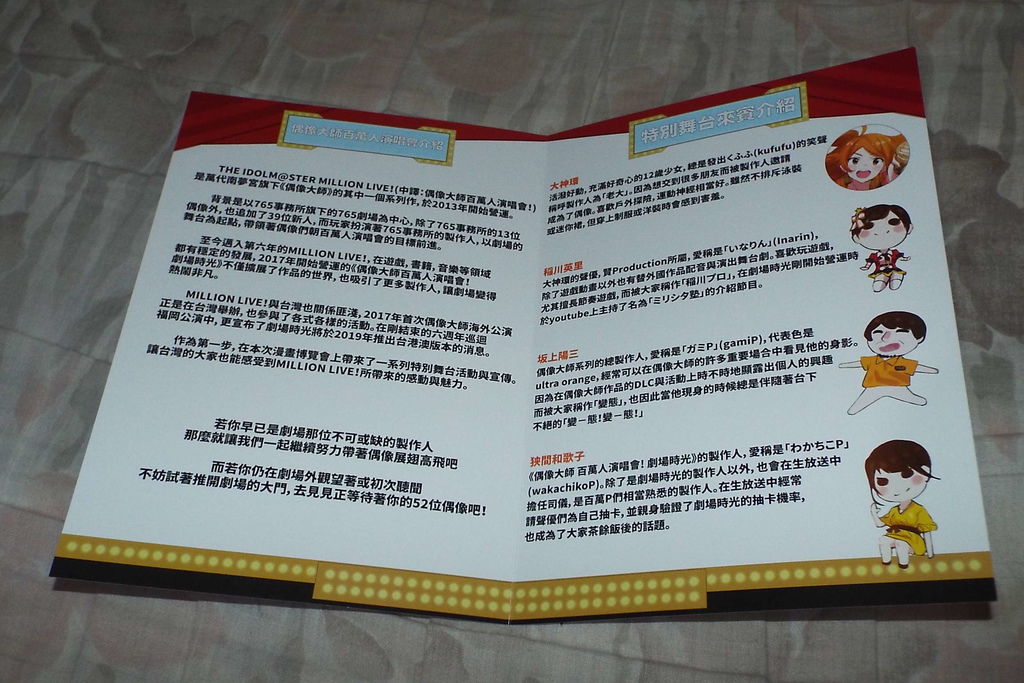 偶像大師百萬人演唱會介紹
THE IDOLM@STER MILLION LIVE!(中譯:偶像大師百萬人演唱會!)
是萬代南夢宮旗下《偶像大師》的其中一個系列作,於2013年開始營運。
背景是以765事務所旗下的765劇場為中心,除了765事務所的13位
偶像外,也追加了39位新人,而玩家扮演著765事務所的製作人,以劇場的
舞台為起點,帶領著偶像們朝百萬人演唱會的目標前進。
至今邁入第六年的MILLION LIVE!,在遊戲,書籍,音樂等領域
都有穩定的發展,2017年開始營運的《偶像大師百萬人演唱會!
劇場時光》不僅擴展了作品的世界,也吸引了更多製作人,讓劇場變得
熱鬧非凡。
MILLION LIVE!與台灣也關係匪淺,2017年首次偶像大師海外公演
正是在台灣舉辦,也參與了各式各樣的活動。在剛結束的六週年巡迴
福岡公演中,更宣布了劇場時光將於2019年推出台港澳版本的消息。
作為第一步,在本次漫畫博覽會上帶來了一系列特別舞台活動與宣傳。
讓台灣的大家也能感受到MILLION LIVE!所帶來的感動與魅力。
若你早已是劇場那位不可或缺的製作人
那麼就讓我們一起繼續努力帶著偶像展翅高飛吧
而若你仍在劇場外觀望著或初次聽聞
不妨試著推開劇場的大門,去見見正等待著你的52位偶像吧!
特別舞台來賓介紹
大神環
活潑好動,充滿好奇心的12歲少女,總是發出くふふ(kufufu)的笑聲
稱呼製作人為「老大」。因為想交到很多朋友而被製作人邀請
成為了偶像。喜歡戶外探險,運動神經相當好。雖然不排斥泳裝
或迷你裙,但穿上制服或洋裝時會感到害羞。
稻川英里
大神環的聲優,賢Production所屬,愛稱是「いなりん」(Inarin),
除了遊戲動畫以外也有替外國作品配音與演出舞台劇。喜歡玩遊戲,
尤其擅長節奏遊戲,而被大家稱作「稲川プロ」,在劇場時光剛開始營運時
於youtube上主持了名為「ミリシタ塾」的介紹節目。
坂上陽三
偶像大師系列的總製作人,愛稱是「ガミP」(gamiP),代表色是
ultra orange,經常可以在偶像大師的許多重要場合中看見他的身影。
因為在偶像大師作品的DLC與活動上時不時地顯露出個人的興趣
而被大家稱作「變態」,也因此當他現身的時候總是伴隨著台下
不絕的「變－態!變－態!」
狹間和歌子
《偶像大師 百萬人演唱會! 劇場時光》的製作人,愛稱是「わかちこP」
(wakachikoP)。除了是劇場時光的製作人以外,也會在生放送中
擔任司儀,是百萬P們相當熟悉的製作人。在生放送中經常
請聲優們為自己抽卡,並親身驗證了劇場時光的抽卡機率,
也成為了大家茶餘飯後的話題。